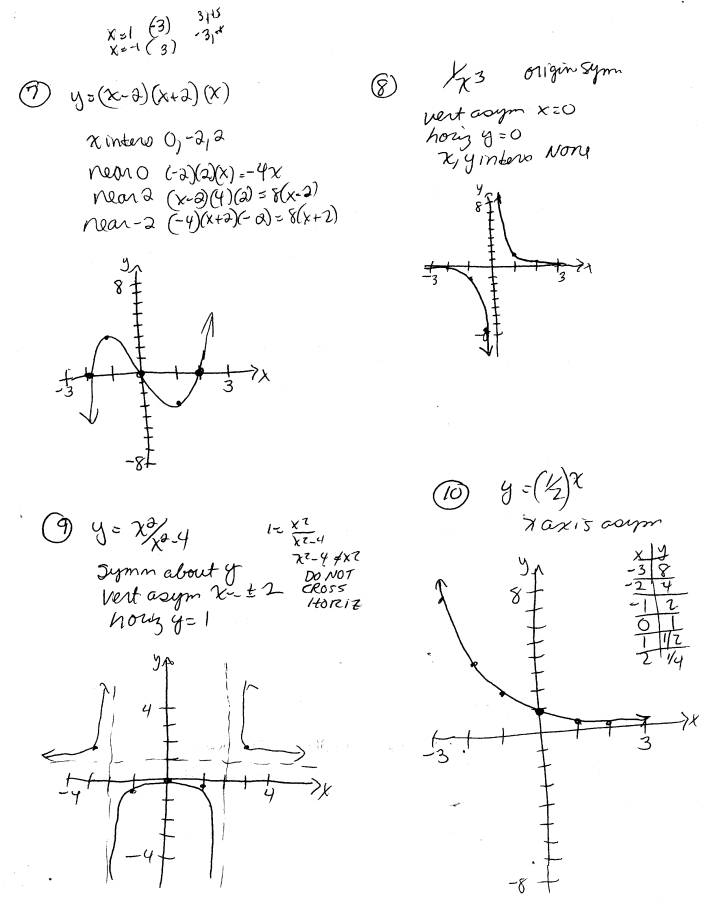 x=1 (-3) 3,+3
x=-1 (3)
⑦ y=(x-2)(x+2)(x)
x inters 0,-2,2
near 0 (-2)(2)(x)=-4x
near 2 (x-2)(4)(2)=8(x-2)
near -2 (-4)(x+2)(-2)=8(x+2)
y
8
-3 3 x
-8
⑧ 1/x3 origin sym
vert asym x=0
horiz y=0
x,y inters None
y
8
-3 3 x
-8
⑨ y=x²/x²-4
symm about y
vert asym x=±2
horiz y=1
1=x²/x²-4
x²-4≠x²
DO NOT
CROSS
HORIZ
y
4
-4 4 x
-4
⑩ y=(1/2)^x
x axis asym
x y
-3 8
-2 4
-1 2
0 1
1 1/2
2 1/4
y
8
-3 3 x
-8